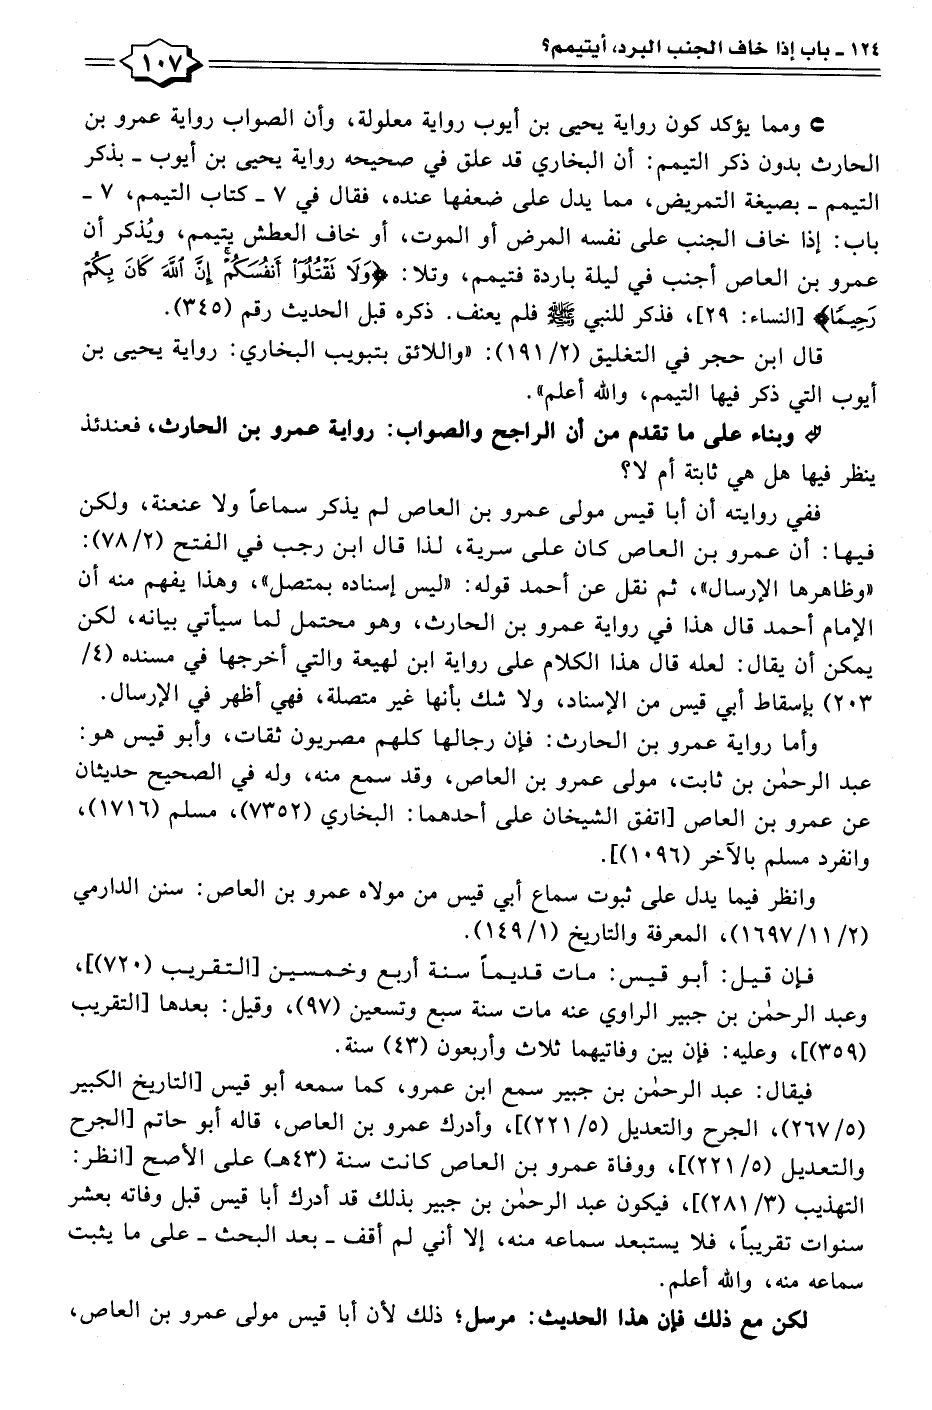 ١٢٤ ـ باب إذا خاف الجنب البرد، أيتيمم؟
١٠٧
ومما يؤكد كون رواية يحيى بن أيوب رواية معلولة، وأن الصواب رواية عمرو بن
الحارث بدون ذكر التيمم: أن البخاري قد علق في صحيحه رواية يحيى بن أيوب ـ بذكر
التيمم ـ بصيغة التمريض، مما يدل على ضعفها عنده، فقال في ٧ ـ كتاب التيمم، ٧ ـ
باب: إذا خاف الجنب على نفسه المرض أو الموت، أو خاف العطش يتيمم، ويُذكر أن
عمرو بن العاص أجنب في ليلة باردة فتيمم، وتلا: ﴿وَلَا نَقْتُلُوٓا۟ أَنفُسَكُمْ ۚ إِنَّ ٱللَّهَ كَانَ بِكُمْ
رَحِيمًا﴾ [النساء: ٢٩]، فذكر للنبي ﷺ فلم يعنف. ذكره قبل الحديث رقم (٣٤٥).
قال ابن حجر في التغليق (٢/ ١٩١): «واللائق بتبويب البخاري: رواية يحيى بن
أيوب التي ذكر فيها التيمم، والله أعلم».
وبناء على ما تقدم من أن الراجح والصواب: رواية عمرو بن الحارث، فعندئذ
ينظر فيها هل هي ثابتة أم لا؟
ففي روايته أن أبا قيس مولى عمرو بن العاص لم يذكر سماعاً ولا عنعنة، ولكن
فيها: أن عمرو بن العاص كان على سرية، لذا قال ابن رجب في الفتح (٢/ ٧٨):
«وظاهرها الإرسال»، ثم نقل عن أحمد قوله: «ليس إسناده بمتصل»، وهذا يفهم منه أن
الإمام أحمد قال هذا في رواية عمرو بن الحارث، وهو محتمل لما سيأتي بيانه، لكن
يمكن أن يقال: لعله قال هذا الكلام على رواية ابن لهيعة والتي أخرجها في مسنده (٤/
٢٠٣) بإسقاط أبي قيس من الإسناد، ولا شك بأنها غير متصلة، فهي أظهر في الإرسال.
وأما رواية عمرو بن الحارث: فإن رجالها كلهم مصريون ثقات، وأبو قيس هو:
عبد الرحمٰن بن ثابت، مولى عمرو بن العاص، وقد سمع منه، وله في الصحيح حديثان
عن عمرو بن العاص [اتفق الشيخان على أحدهما: البخاري (٧٣٥٢)، مسلم (١٧١٦)،
وانفرد مسلم بالآخر (١٠٩٦)].
وانظر فيما يدل على ثبوت سماع أبي قيس من مولاه عمرو بن العاص: سنن الدارمي
(٢/ ١١/ ١٦٩٧)، المعرفة والتاريخ (١/ ١٤٩).
فإن قيل: أبو قيس: مات قديماً سنة أربع وخمسين [التقريب (٧٢٠)]،
وعبد الرحمٰن بن جبير الراوي عنه مات سنة سبع وتسعين (٩٧)، وقيل: بعدها [التقريب
(٣٥٩)]، وعليه: فإن بين وفاتيهما ثلاث وأربعون (٤٣) سنة.
فيقال: عبد الرحمٰن بن جبير سمع ابن عمرو، كما سمعه أبو قيس [التاريخ الكبير
(٥/ ٢٦٧)، الجرح والتعديل (٥/ ٢٢١)]، وأدرك عمرو بن العاص، قاله أبو حاتم [الجرح
والتعديل (٥/ ٢٢١)]، ووفاة عمرو بن العاص كانت سنة (٤٣هـ) على الأصح [انظر:
التهذيب (٣/ ٢٨١)]، فيكون عبد الرحمٰن بن جبير بذلك قد أدرك أبا قيس قبل وفاته بعشر
سنوات تقريباً، فلا يستبعد سماعه منه، إلا أني لم أقف ـ بعد البحث ـ على ما يثبت
سماعه منه، والله أعلم.
لكن مع ذلك فإن هذا الحديث: مرسل؛ ذلك لأن أبا قيس مولى عمرو بن العاص،